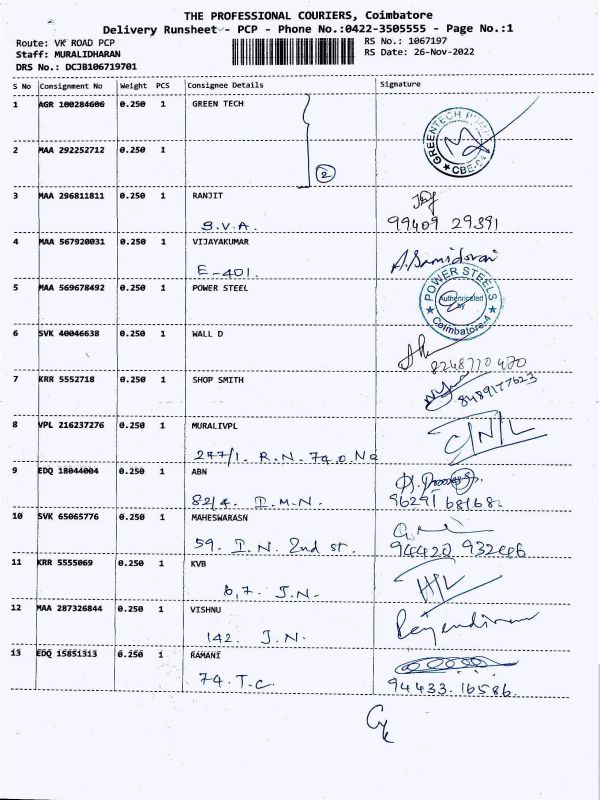 THE PROFESSIONAL COURIERS, Coimbatore
Delivery Runsheet - PCP - Phone No.:0422-3505555 - Page No.:1
Route: VK ROAD PCP RS No.: 1067197
Staff: MURALIDHARAN RS Date: 26-Nov-2022
DRS No.: DCJB106719701
S No Consignment No Weight PCS Consignee Details Signature
1 AGR 100284606 0.250 1 GREEN TECH
GREENTECH
CBE-
2 MAA 292252712 0.250 1
2
3 MAA 296811811 0.250 1 RANJIT
S.V.A. 99409 29391
4 MAA 567920031 0.250 1 VIJAYAKUMAR
E-401. A.Samidorai
5 MAA 569678492 0.250 1 POWER STEEL
POWER STEELS
Authenticated
by
Coimbatore-4
6 SVK 40046638 0.250 1 WALL D
8248770470
7 KRR 5552718 0.250 1 SHOP SMITH
8489177623
8 VPL 216237276 0.250 1 MURALIVPL
277/1. R.N. 74.0. C/N/L
9 EDQ 18044004 0.250 1 ABN
82/4. I.M.N. 96291 68168
10 SVK 65065776 0.250 1 MAHESWARASN
59. I.N. 2nd st. 94420 932
11 KRR 5555069 0.250 1 KVB
6,7. J.N. H/L
12 MAA 287326844 0.250 1 VISHNU
142. J.N. Rajendiran
13 EDQ 15851313 0.250 1 RAMANI
74. T.C. 94433. 16586.